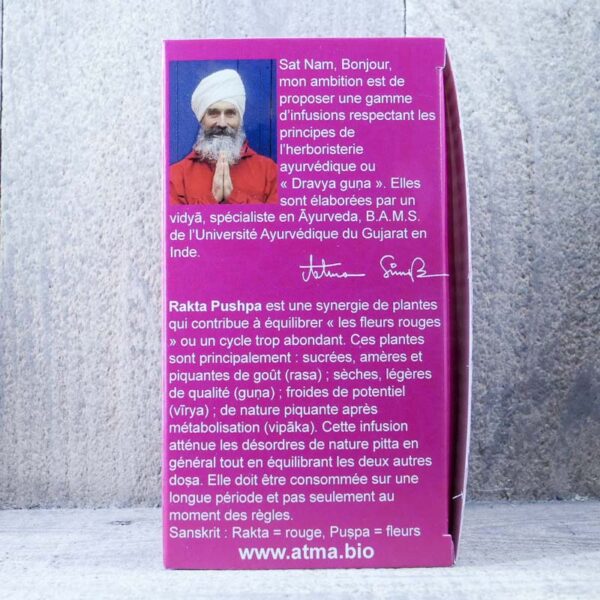 Sat Nam, Bonjour,
mon ambition est de
proposer une gamme
d'infusions respectant les
principes de
l'herboristerie
ayurvédique ou
« Dravya guṇa ». Elles
sont élaborées par un
vidyā, spécialiste en Āyurveda, B.A.M.S.
de l'Université Ayurvédique du Gujarat en
Inde.
Atma Singh
Rakta Pushpa est une synergie de plantes
qui contribue à équilibrer « les fleurs rouges
» ou un cycle trop abondant. Ces plantes
sont principalement : sucrées, amères et
piquantes de goût (rasa) ; sèches, légères
de qualité (guṇa) ; froides de potentiel
(vīrya) ; de nature piquante après
métabolisation (vipāka). Cette infusion
atténue les désordres de nature pitta en
général tout en équilibrant les deux autres
doṣa. Elle doit être consommée sur une
longue période et pas seulement au
moment des règles.
Sanskrit : Rakta = rouge, Puṣpa = fleurs
www.atma.bio